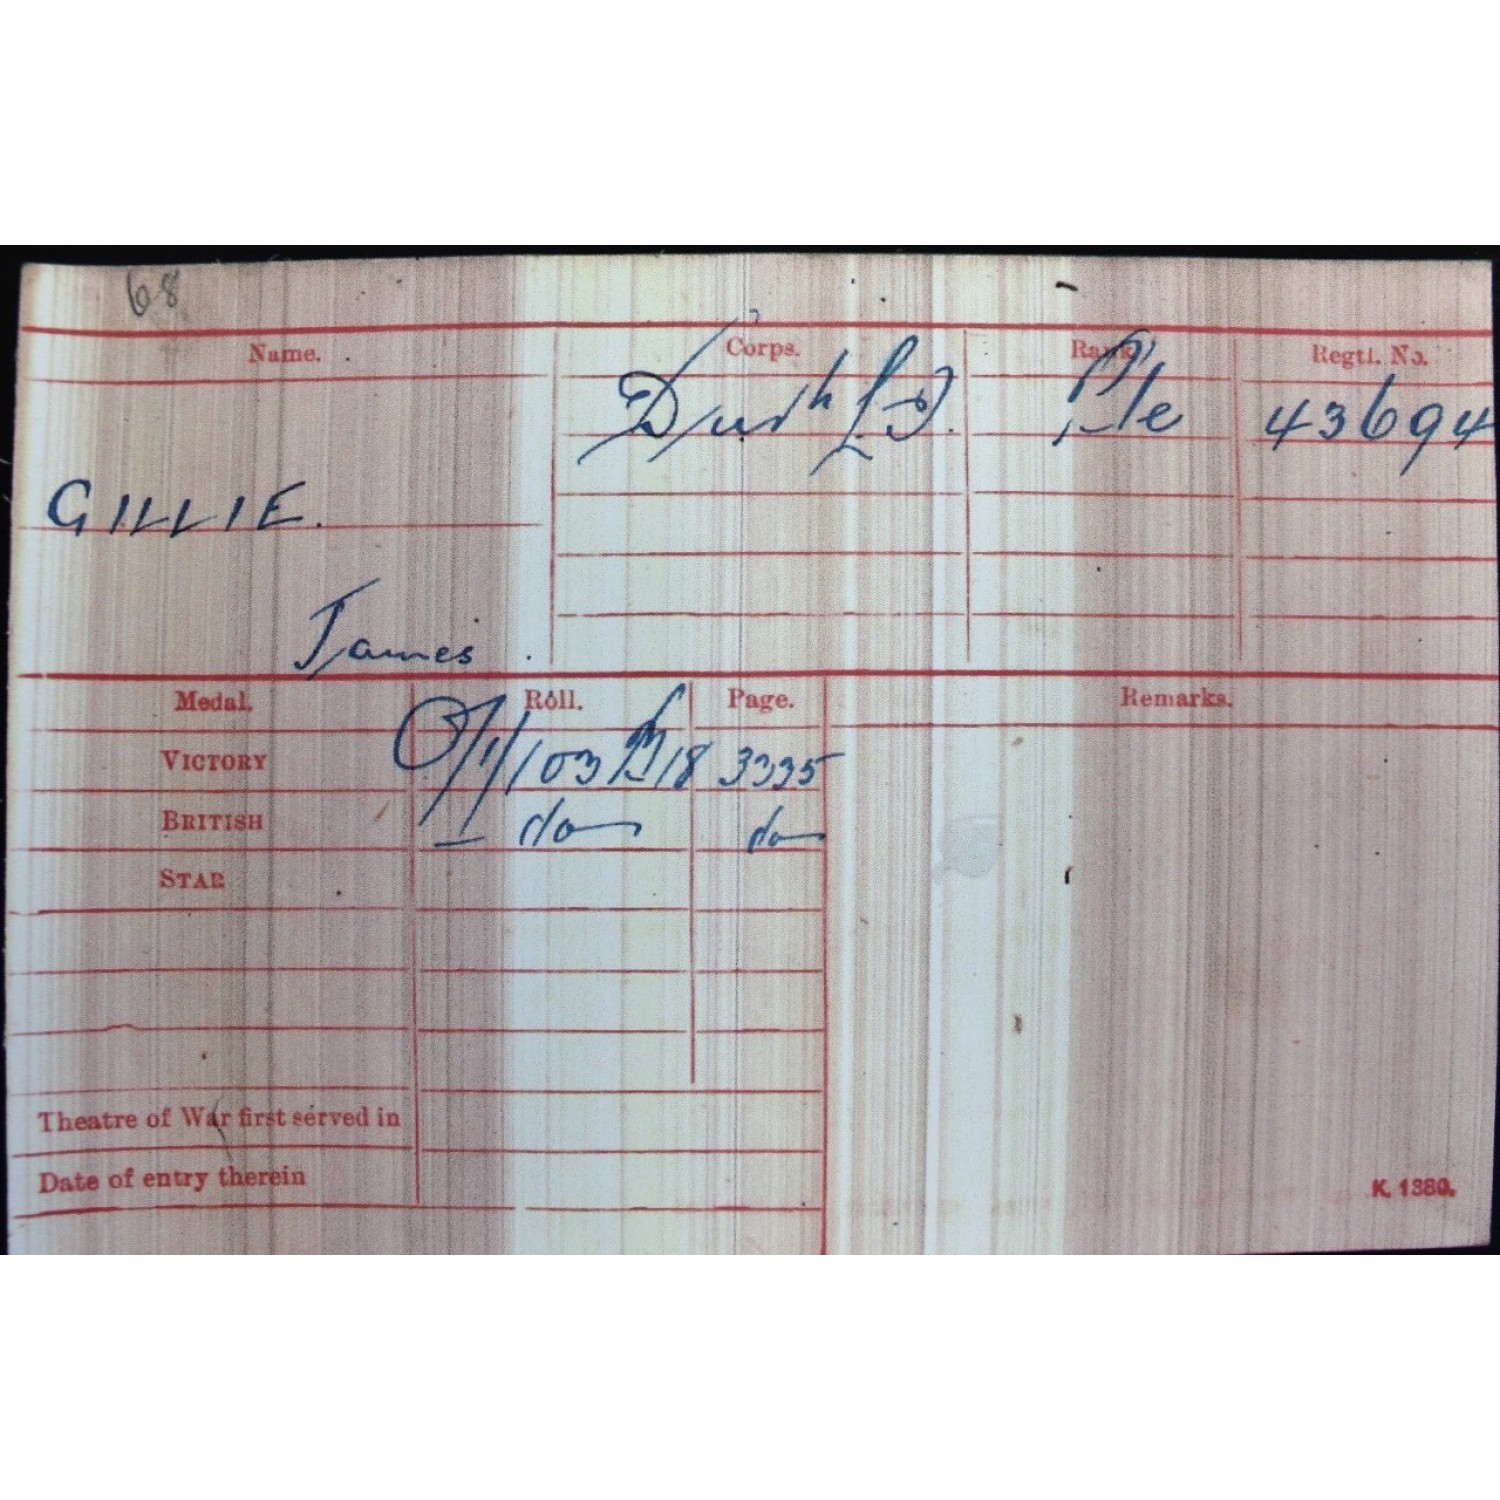 68
Name. Corps. Rank Regtl. No.
Durh L.I. Pte 43694
GILLIE.
James
Medal. Roll. Page. Remarks.
VICTORY /103 B18 3335
BRITISH do do
STAR
Theatre of War first served in
Date of entry therein
K. 1380.